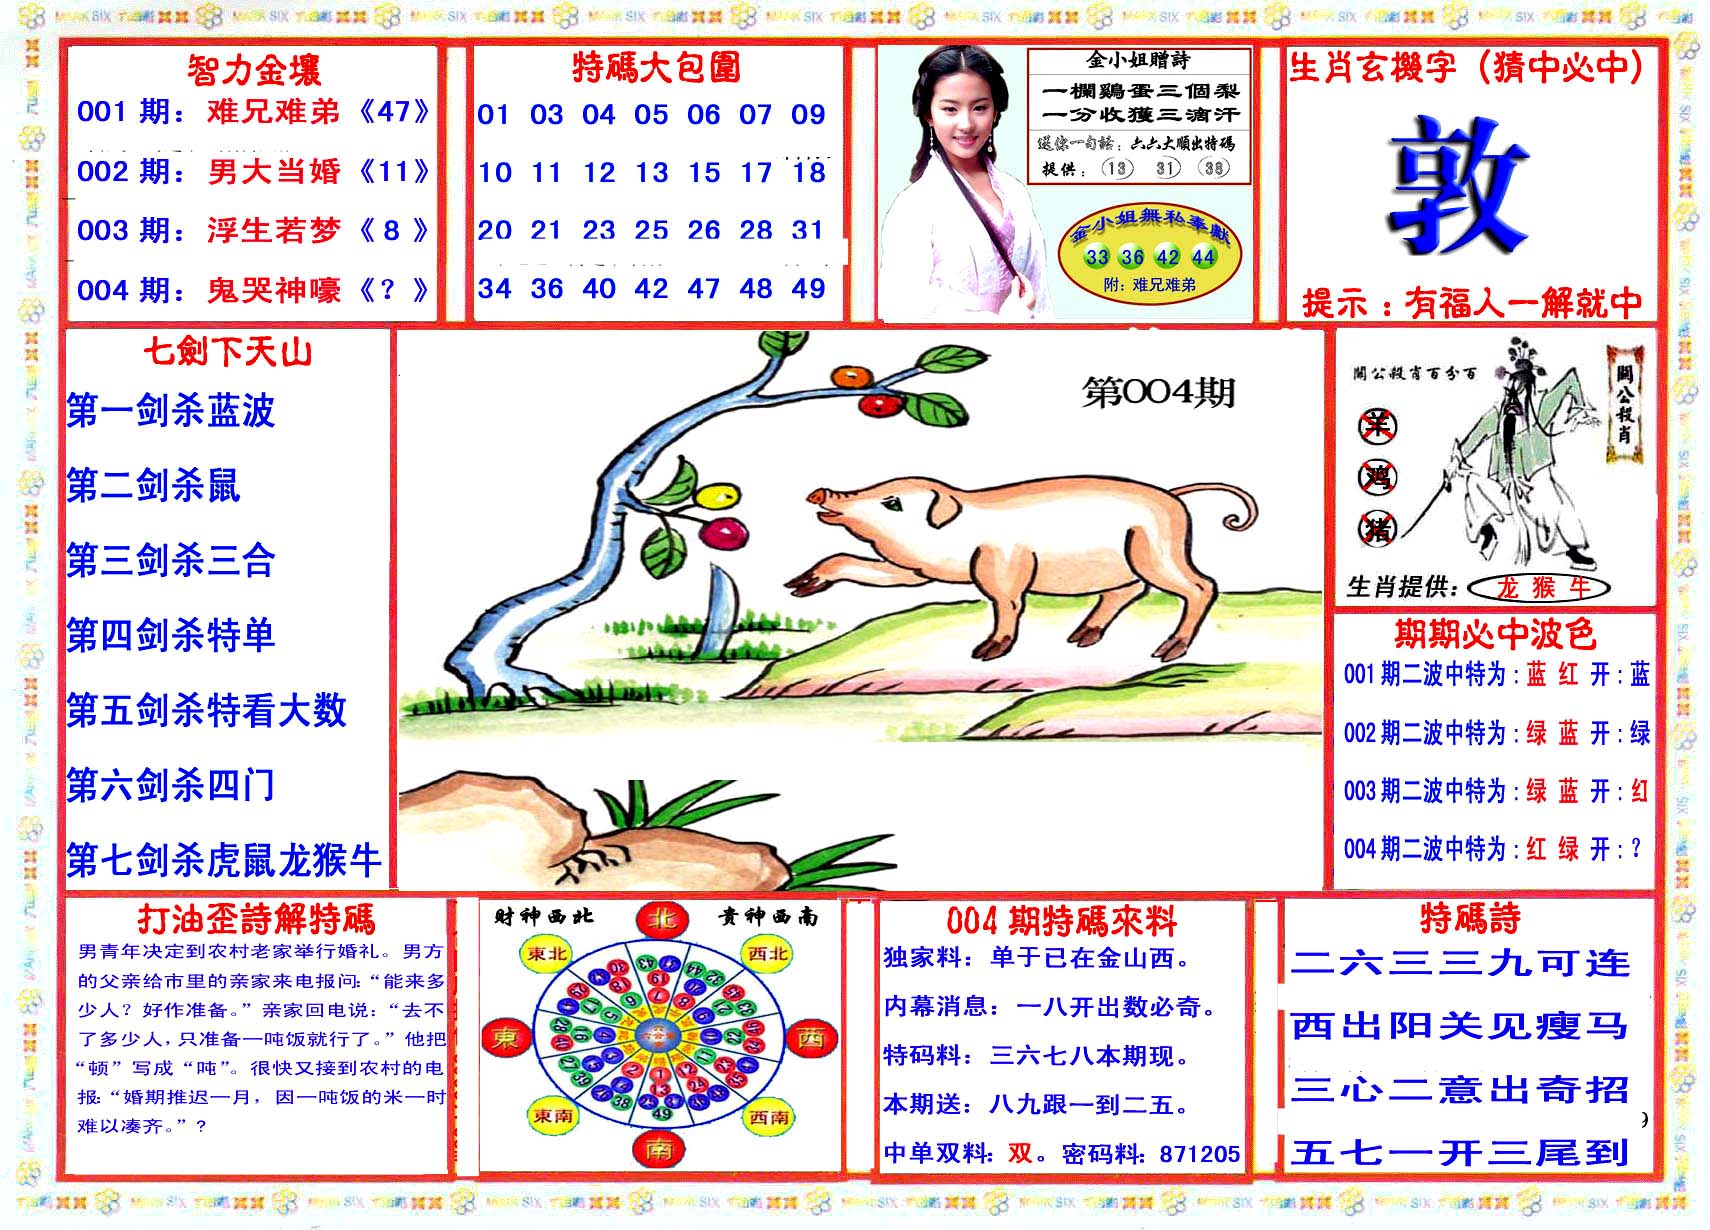 智力金壤
001 期： 难兄难弟《47》
002 期： 男大当婚《11》
003 期： 浮生若梦《 8 》
004 期： 鬼哭神嚎《 ？ 》
特碼大包圍
01 03 04 05 06 07 09
10 11 12 13 15 17 18
20 21 23 25 26 28 31
34 36 40 42 47 48 49
金小姐贈詩
一欄鷄蛋三個梨
一分收獲三滴汗
送你一句話：六六大順出特碼
提供： 13 31 38
金小姐無私奉獻
33 36 42 44
附：难兄难弟
生肖玄機字（猜中必中）
敦
提示：有福人一解就中
七劍下天山
第一剑杀蓝波
第二剑杀鼠
第三剑杀三合
第四剑杀特单
第五剑杀特看大数
第六剑杀四门
第七剑杀虎鼠龙猴牛
第004期
關公殺肖百分百
關公殺肖
羊
鸡
猪
生肖提供： 龙 猴 牛
期期必中波色
001 期二波中特为：蓝 红 开：蓝
002 期二波中特为：绿 蓝 开：绿
003 期二波中特为：绿 蓝 开：红
004 期二波中特为：红 绿 开：？
打油歪詩解特碼
男青年决定到农村老家举行婚礼。男方
的父亲给市里的亲家来电报问：“能来多
少人？好作准备。”亲家回电说：“去不
了多少人，只准备一吨饭就行了。”他把
“顿”写成“吨”。很快又接到农村的电
报：“婚期推迟一月，因一吨饭的米一时
难以凑齐。”?
財神西北
貴神西南
北
東北
西北
東
西
東南
西南
南
004 期特碼來料
独家料：单于已在金山西。
内幕消息：一八开出数必奇。
特码料：三六七八本期现。
本期送：八九跟一到二五。
中单双料：双。密码料：871205
特碼詩
二六三三九可连
西出阳关见瘦马
三心二意出奇招
五七一开三尾到